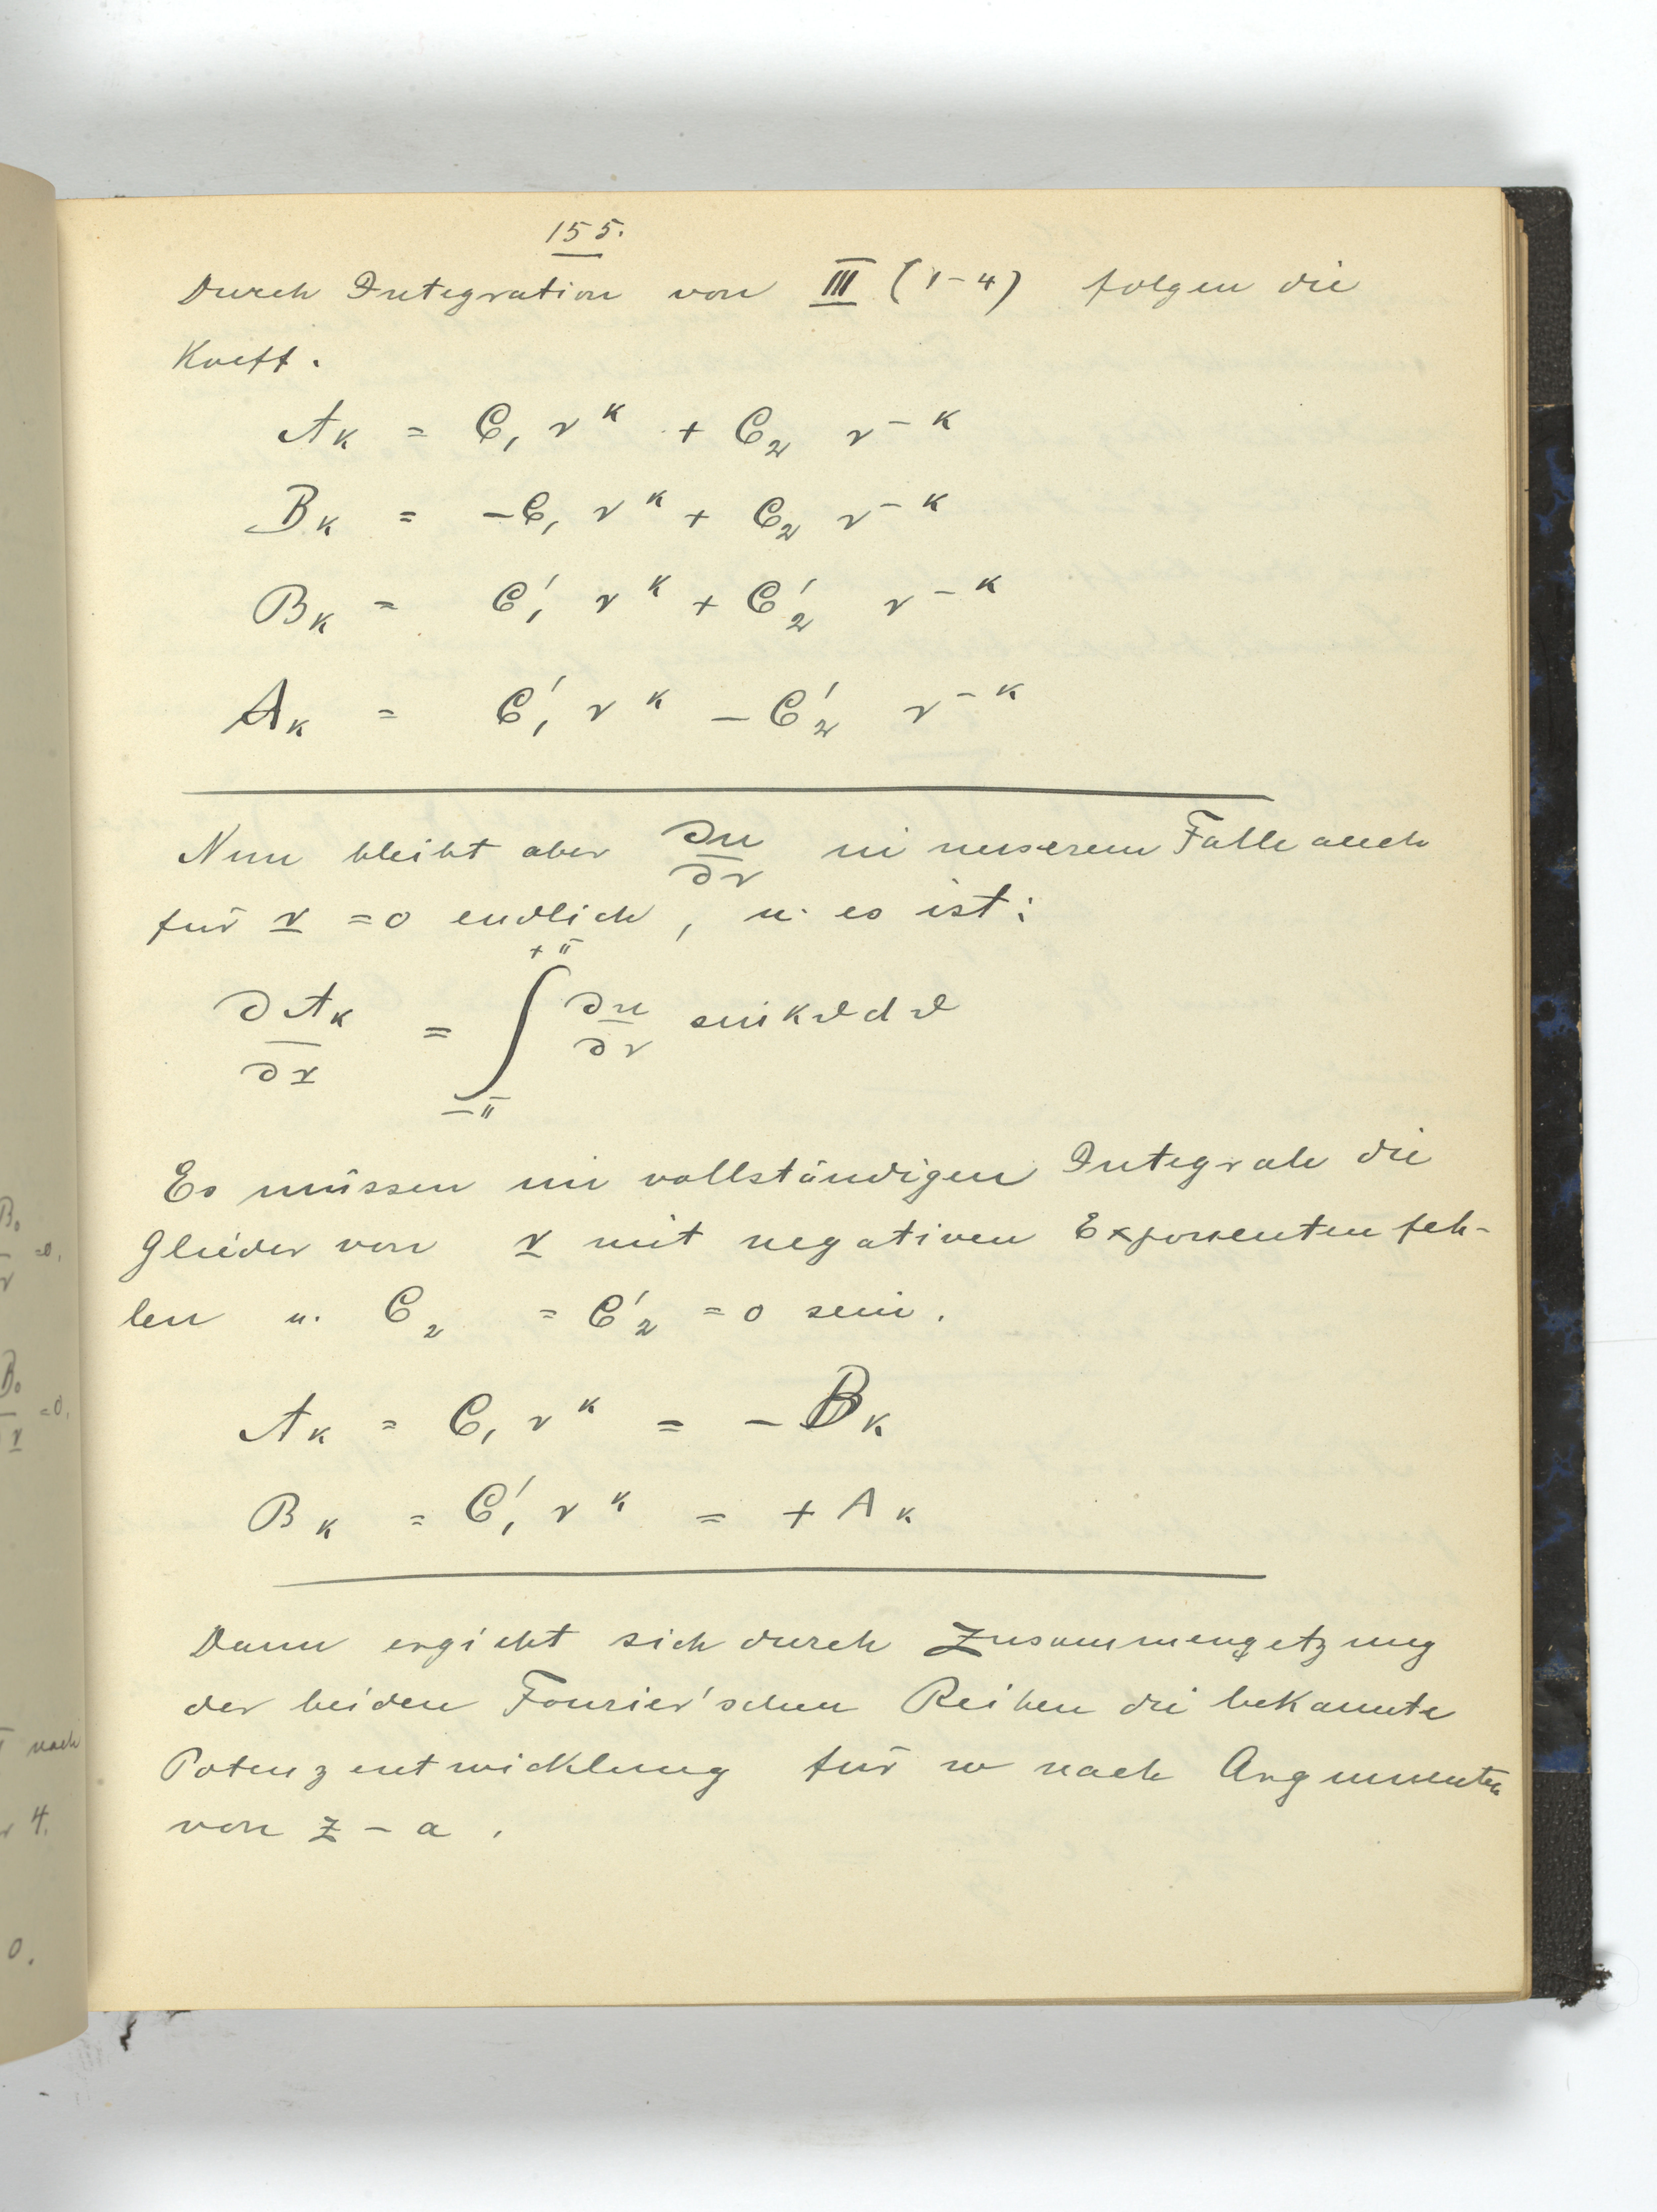 155.
Durch Integration von III (1-4) folgen die
Koeff.
A_k = C_1 r^k + C_2 r^{-k}
B_k = -C_1 r^k + C_2 r^{-k}
B_k = C'_1 r^k + C'_2 r^{-k}
A_k = C'_1 r^k - C'_2 r^{-k}
Nun bleibt aber ∂u/∂r in unserem Falle auch
für r = 0 endlich, u. es ist:
∂A_k/∂r = ∫_{-π}^{+π} ∂u/∂r sin kϑ dϑ
Es müssen im vollständigen Integrale die
Glieder von r mit negativen Exponenten feh-
len u. C_2 = C'_2 = 0 sein.
A_k = C_1 r^k = - B_k
B_k = C'_1 r^k = + A_k
Dann ergiebt sich durch Zusammensetzung
der beiden Fourier'schen Reihen die bekannte
Potenzentwicklung für w nach Argumenten
von z - a.
B_0
=0.
r
B_0
=0.
r
nach
4.
0.